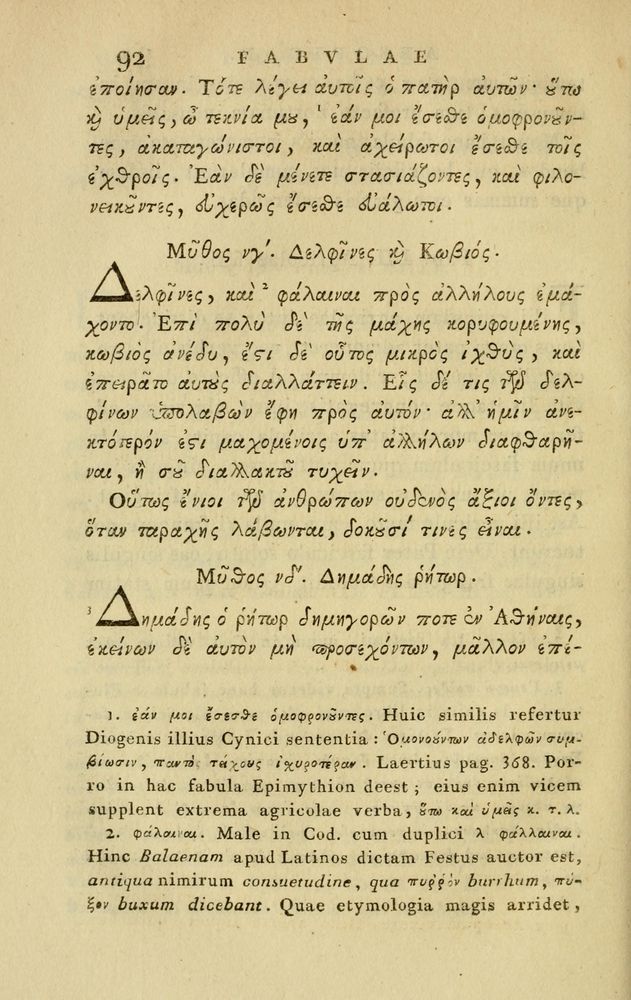 92 FABVLAE
ἐποίησαν. Τότε λέγει αὐτοῖς ὁ πατὴρ αὐτῶν· ȣ̔́τω
ϗ̀ ὑμεῖς, ὦ τεκνία μȣ, ¹ ἐάν μοι ἔσεσθε ὁμοφρονȣ͂ν-
τες, ἀκαταγώνιστοι, καὶ ἀχείρωτοι ἔσεσθε τοῖς
ἐχθροῖς. Ἐὰν δὲ μένετε στασιάζοντες, καὶ φιλο-
νεικȣ͂ντες, ἐυχερῶς ἔσεσθε ἐυάλωτοι.
Μῦθος νγ'. Δελφῖνες ϗ̀ Κωβιός.
Δελφῖνες, καὶ ² φάλαιναι πρὸς ἀλλήλους ἐμά-
χοντο. Ἐπὶ πολὺ δὲ τῆς μάχης κορυφουμένης,
κωβιὸς ἀνέδυ, ἔϛι δὲ οὗτος μικρὸς ἰχθὺς, καὶ
ἐπειρᾶτο αὐτοὺς διαλλάττειν. Εἷς δέ τις τῶν δελ-
φίνων ὑπολαβὼν ἔφη πρὸς αὐτόν· ἀλλ' ἡμῖν ἀνε-
κτότερόν ἐϛι μαχομένοις ὑπ' ἀλλήλων διαφθαρῆ-
ναι, ἢ σȣ͂ διαλλακτȣ͂ τυχεῖν.
Οὕτως ἔνιοι τῶν ἀνθρώπων οὐδενὸς ἄξιοι ὄντες,
ὅταν ταραχῆς λάβωνται, δοκȣ͂σί τινες εἶναι.
Μῦθος νδ'. Δημάδης ῥήτωρ.
³ Δημάδης ὁ ῥήτωρ δημηγορῶν ποτε ἐν Ἀθήναις,
ἐκείνων δὲ αὐτὸν μὴ προσεχόντων, μᾶλλον ἐπέ-
1. ἐάν μοι ἔσεσθε ὁμοφρονȣ͂ντες. Huic similis refertur
Diogenis illius Cynici sententia : Ὁμονούντων ἀδελφῶν συμ-
βίωσιν, παντὸς τείχους ἰχυροτέραν. Laertius pag. 368. Por-
ro in hac fabula Epimythion deest ; eius enim vicem
supplent extrema agricolae verba, ȣ̔́τω καὶ ὑμεῖς κ. τ. λ.
2. φάλαιναι. Male in Cod. cum duplici λ φάλλαιναι.
Hinc Balaenam apud Latinos dictam Festus auctor est,
antiqua nimirum consuetudine, qua πυῤῥὸν burrhum, πύ-
ξον buxum dicebant. Quae etymologia magis arridet,